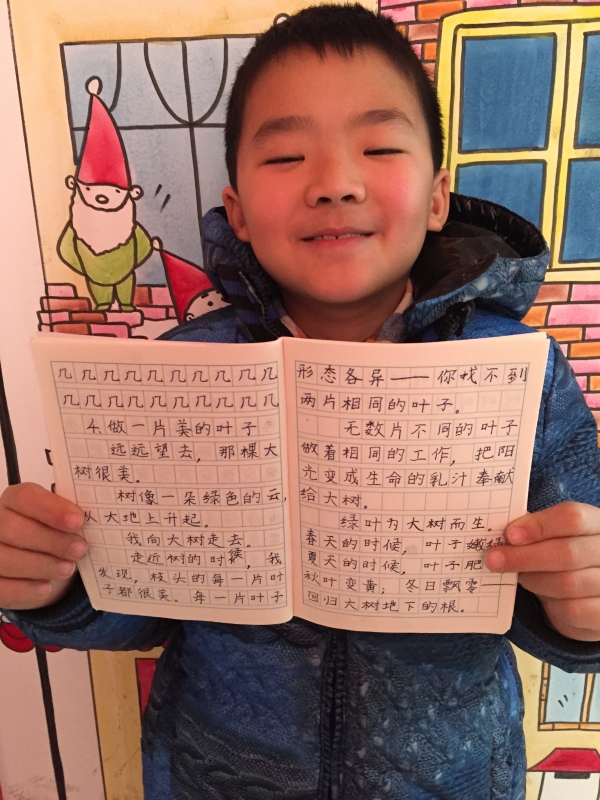 几几几几几几几几几几
几几几几几几几几几几
4.做一片美的叶子
远远望去，那棵大
树很美。
树像一朵绿色的云，
从大地上升起。
我向大树走去。
走近树的时候，我
发现，枝头的每一片叶
子都很美。每一片叶子
形态各异——你找不到
两片相同的叶子。
无数片不同的叶子
做着相同的工作，把阳
光变成生命的乳汁奉献
给大树。
绿叶为大树而生。
春天的时候，叶子嫩绿
夏天的时候，叶子肥
秋叶变黄，冬日飘零——
回归大树地下的根。